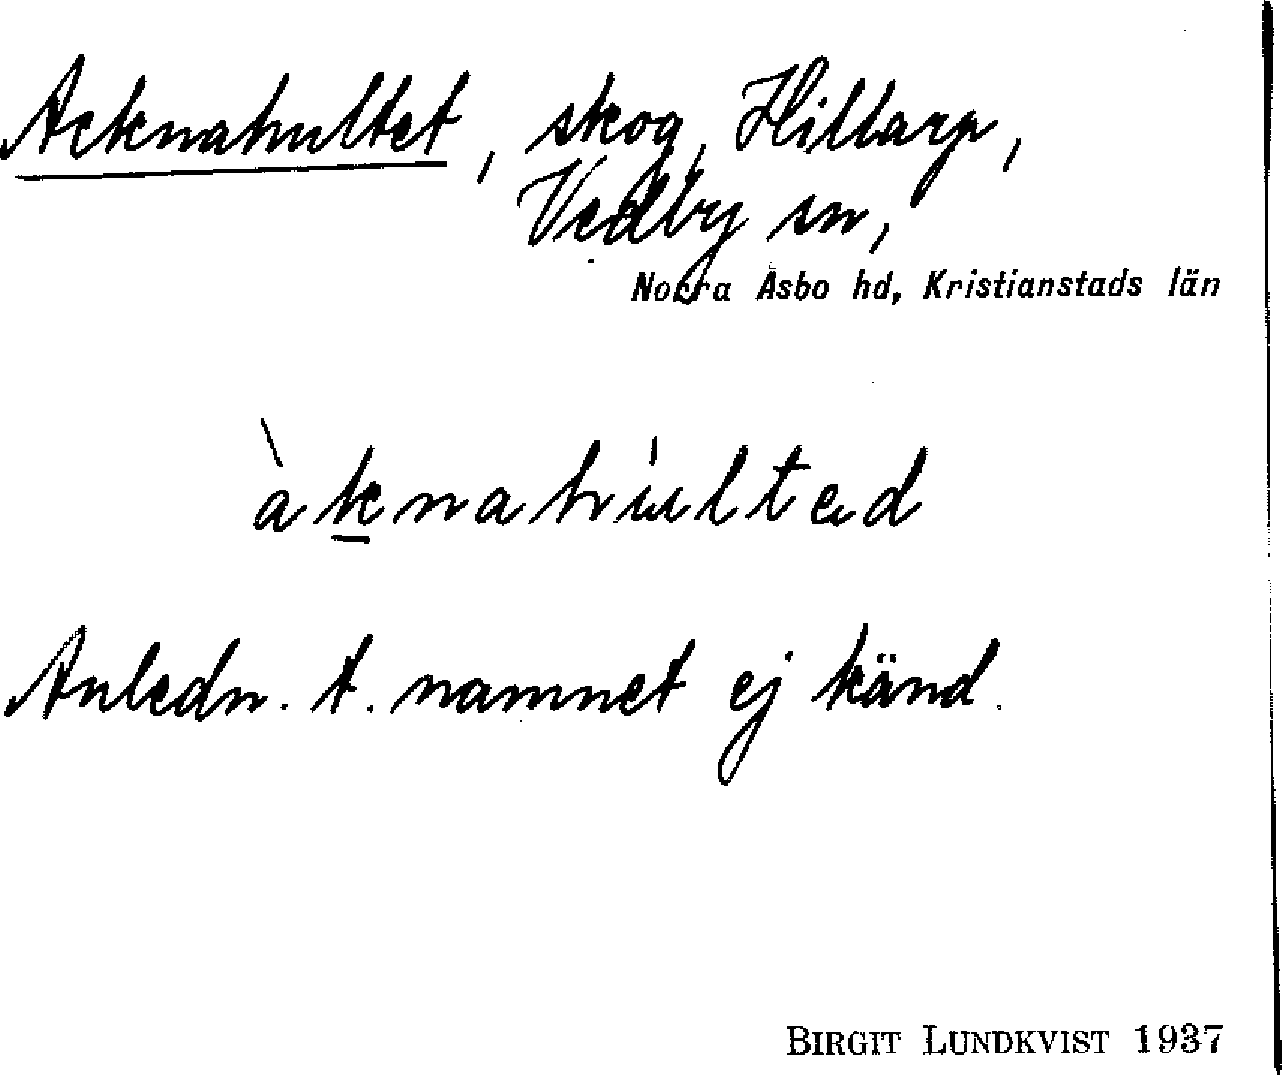 Acknahultet, skog, Hillarp,
Vedby sn,
Norra Åsbo hd, Kristianstads län
àknahu̇lted
Anledn. t. namnet ej känd.
BIRGIT LUNDKVIST 1937